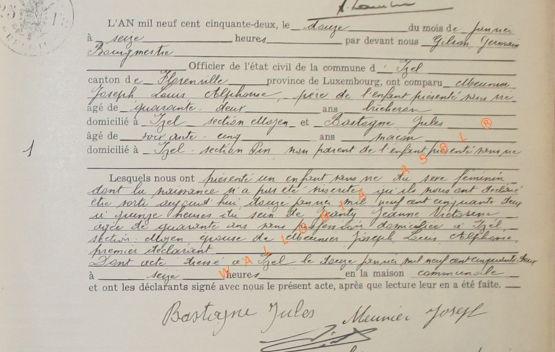 L'AN mil neuf cent cinquante-deux, le douze du mois de janvier
à seize heures par devant nous Gilson Germain
Bourgmestre
Officier de l'état civil de la commune d' Izel
canton de Florenville province de Luxembourg, ont comparu Meunier
Joseph Louis Alphonse, père de l'enfant présenté sans vie
âgé de quarante-deux ans bûcheron
domicilié à Izel section Moyen et Bastogne Jules
âgé de soixante-cinq ans maçon
domicilié à Izel section Pin non parent de l'enfant présenté sans vie
1
Lesquels nous ont présenté un enfant sans vie du sexe féminin
dont la naissance n'a pas été inscrite qu'ils nous ont déclaré
être sorti aujourd'hui douze janvier mil neuf cent cinquante deux
à quinze heures du sein de Jeanne Victorine
âgée de quarante ans sans profession domiciliée à Izel
section Moyen épouse de Meunier Joseph Louis Alphonse
premier déclarant
Dont acte dressé à Izel le douze janvier mil neuf cent cinquante deux
à seize heures en la maison communale
et ont les déclarants signé avec nous le présent acte, après que lecture leur en a été faite.
Bastogne Jules Meunier Joseph
WALLONIA ASBL ®